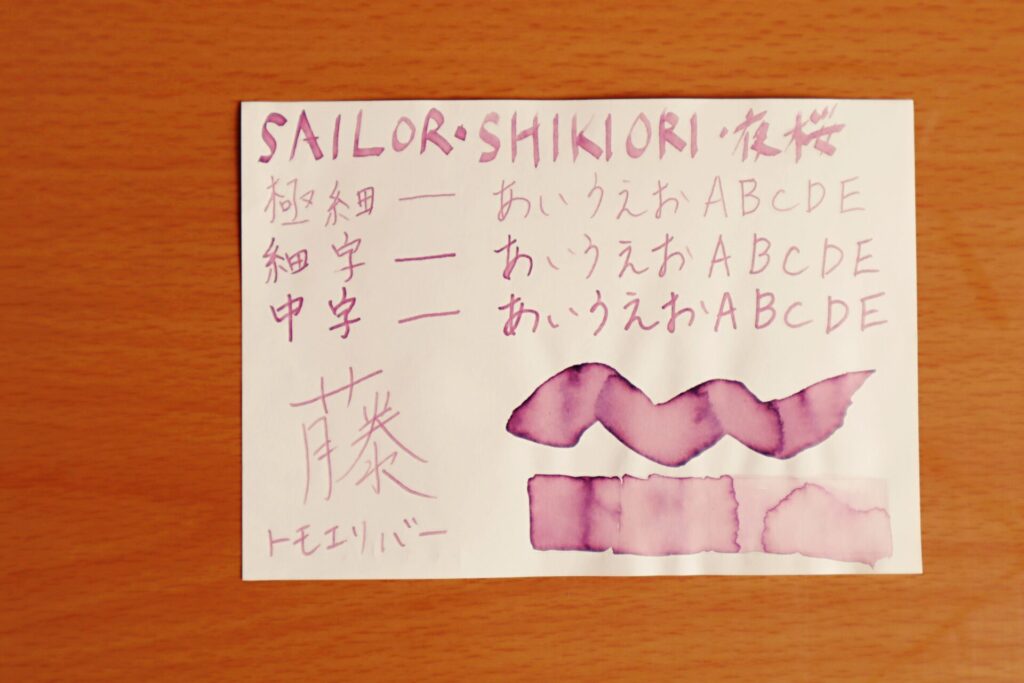 SAILOR・SHIKIORI・夜桜
極細 ー あいうえおABCDE
細字 ー あいうえおABCDE
中字 ー あいうえおABCDE
藤
トモエリバー